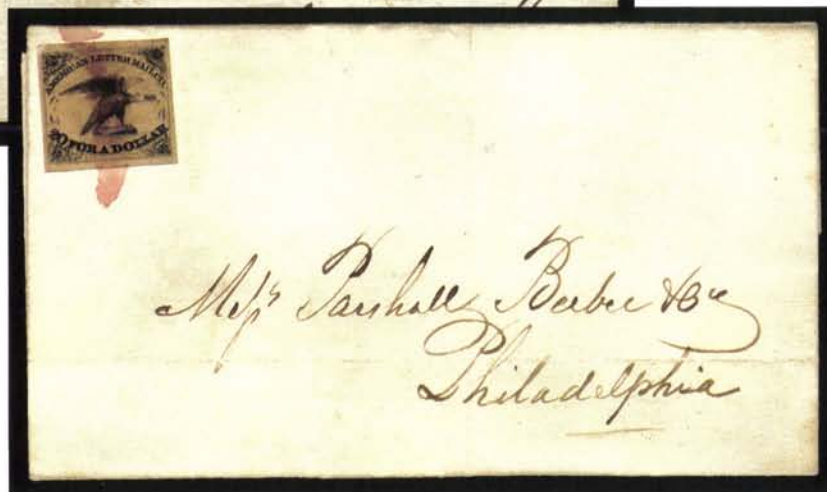 AMERICAN LETTER MAIL CO.
20 FOR A DOLLAR
Mess<sup>rs</sup> Parshall Beebee & Co
Philadelphia